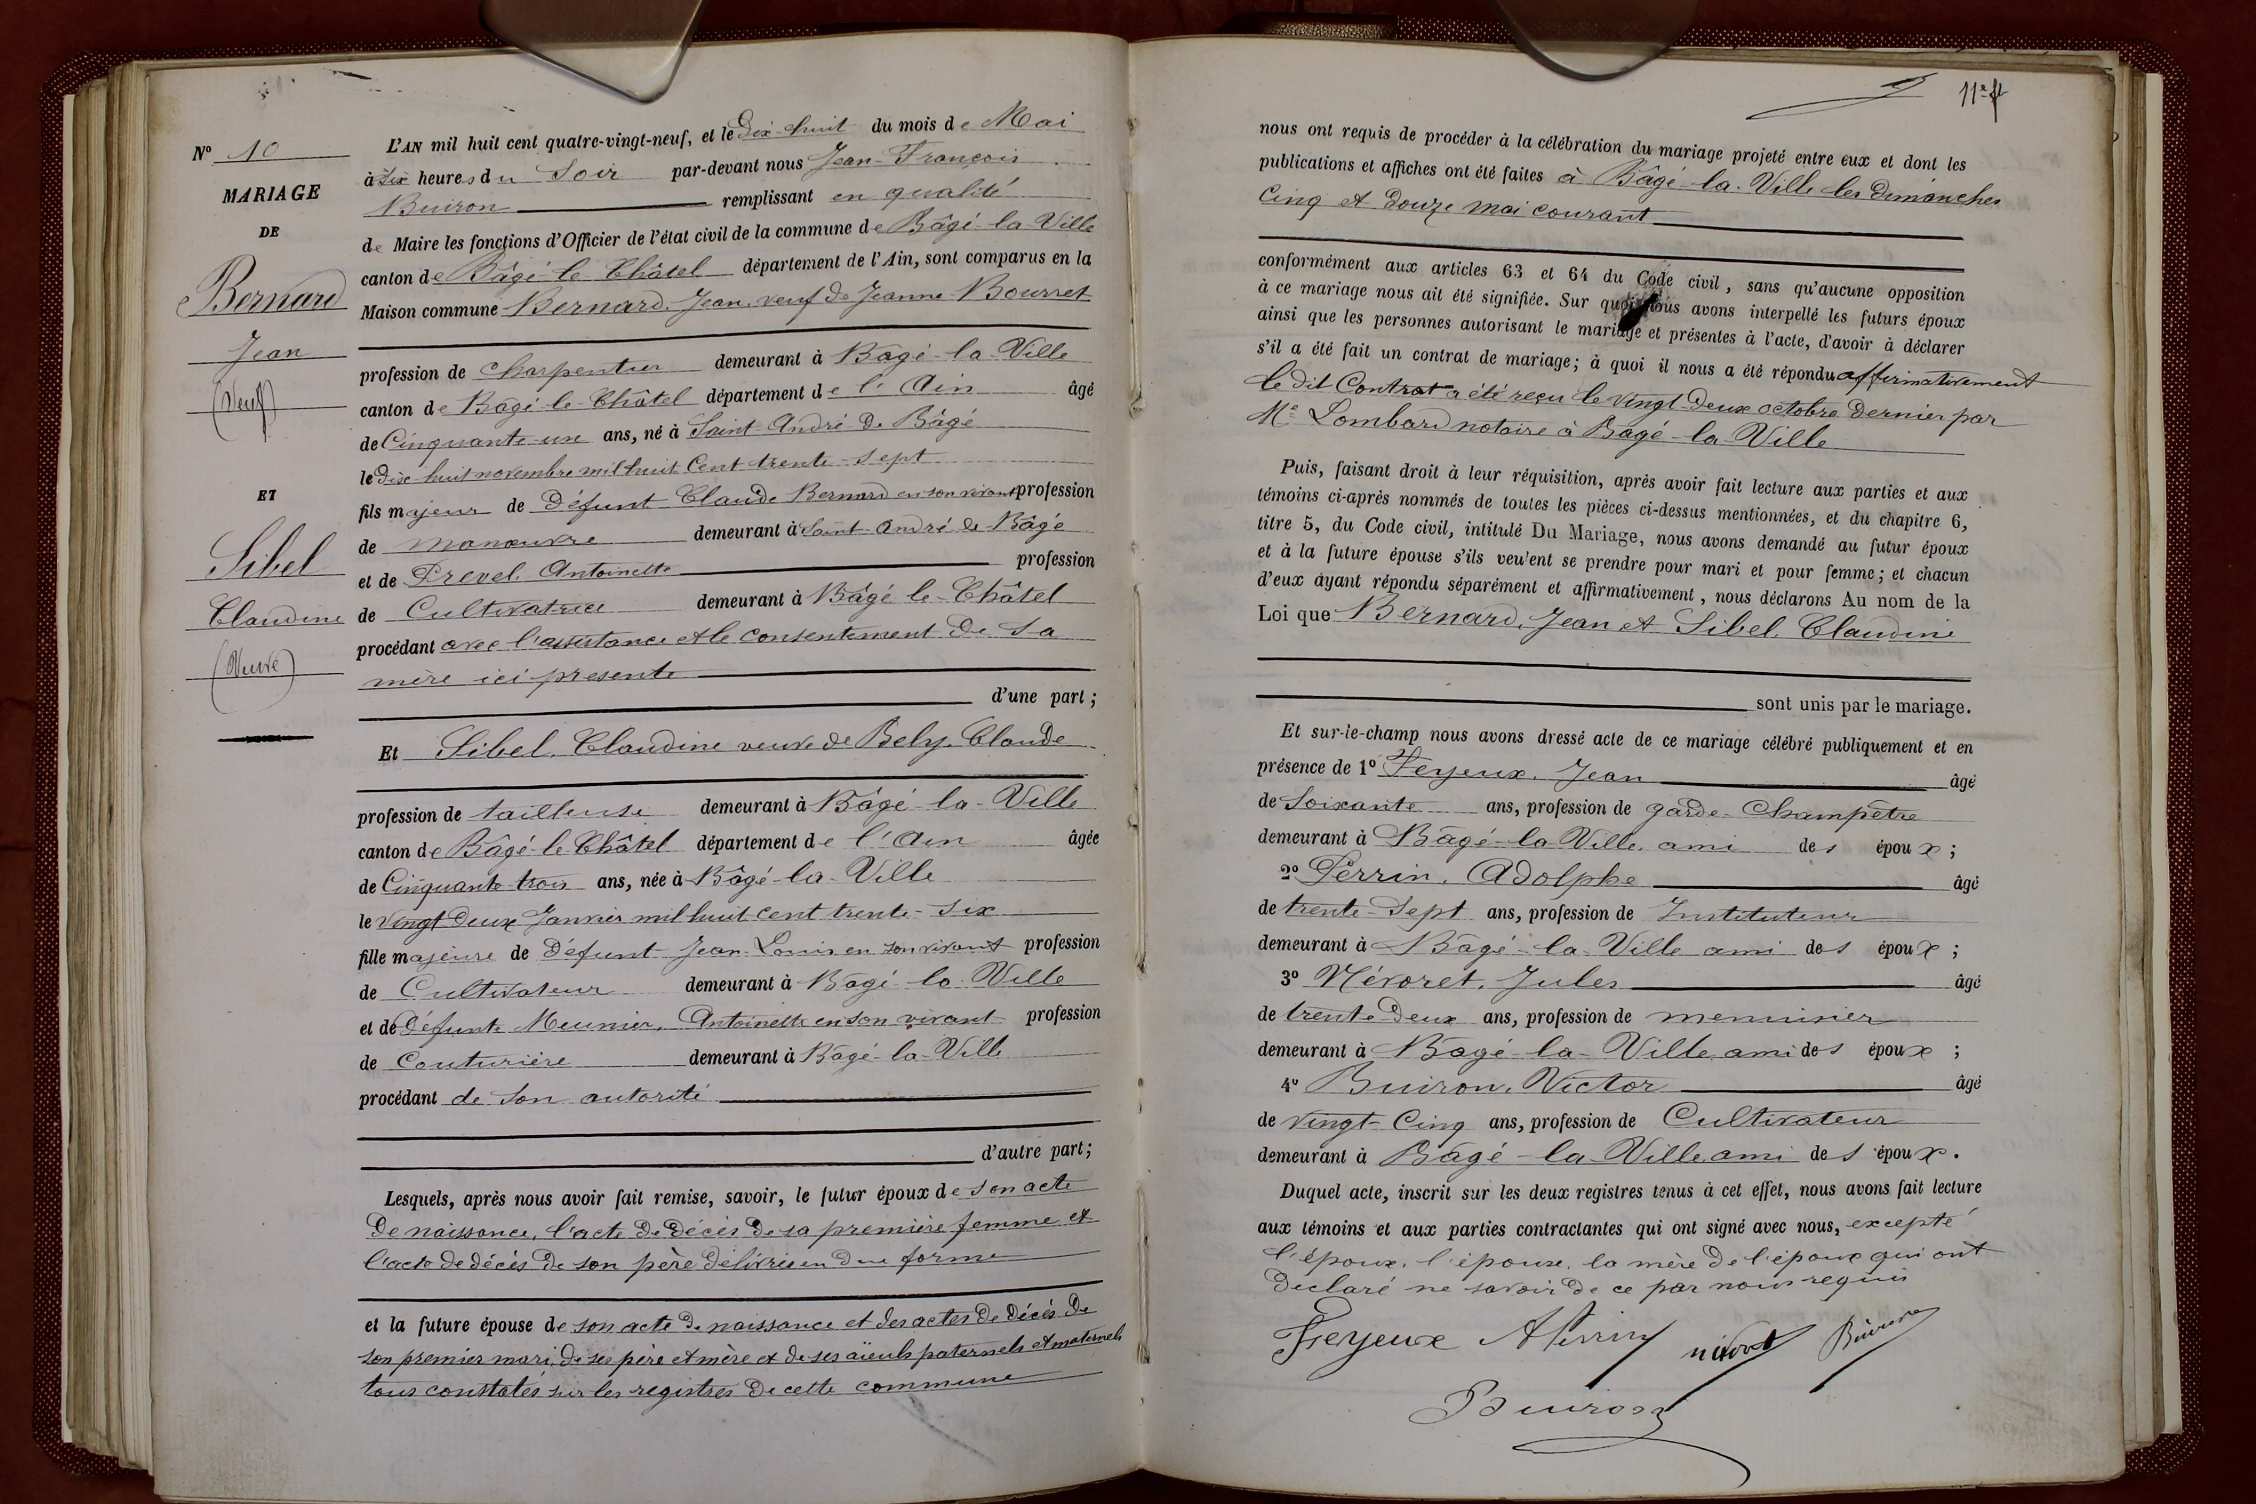 N° 10
MARIAGE
DE
Bernard
Jean
(Veuf)
ET
Sibel
Claudine
(Veuve)
L'AN mil huit cent quatre-vingt-neuf, et le Dix-huit du mois de Mai
à Six heures du Soir par-devant nous Jean-François
Buiron remplissant en qualité
de Maire les fonctions d'Officier de l'état civil de la commune de Bâgé-la-Ville
canton de Bâgé-le-Châtel département de l'Ain, sont comparus en la
Maison commune Bernard, Jean, veuf de Jeanne Bourret
profession de Charpentier demeurant à Bâgé-la-Ville
canton de Bâgé-le-Châtel département de l'Ain âgé
de Cinquante-un ans, né à Saint André de Bâgé
le Dix-huit novembre mil huit cent trente-sept
fils majeur de Défunt Claude Bernard en son vivant profession
de manœuvre demeurant à Saint-André de Bâgé
et de Prevel, Antoinette profession
de Cultivatrice demeurant à Bâgé-le-Châtel
procédant avec l'assistance et le consentement de sa
mère ici présente
d'une part ;
Et Sibel, Claudine veuve de Bely, Claude
profession de tailleuse demeurant à Bâgé-la-Ville
canton de Bâgé-le-Châtel département de l'Ain âgée
de Cinquante-trois ans, née à Bâgé-la-Ville
le Vingt-deux Janvier mil huit cent trente-six
fille majeure de Défunt Jean-Louis en son vivant profession
de Cultivateur demeurant à Bâgé-la-Ville
et de Défunte Meunier, Antoinette en son vivant profession
de Couturière demeurant à Bâgé-la-Ville
procédant de son autorité
d'autre part ;
Lesquels, après nous avoir fait remise, savoir, le futur époux de son acte
de naissance, l'acte de décès de sa première femme et
l'acte de décès de son père délivrés en due forme
et la future épouse de son acte de naissance et des actes de décès de
son premier mari, de ses père et mère et de ses aïeuls paternels et maternels
tous constatés sur les registres de cette commune
11e ft
nous ont requis de procéder à la célébration du mariage projeté entre eux et dont les
publications et affiches ont été faites à Bâgé-la-Ville les dimanches
Cinq et Douze mai courant
conformément aux articles 63 et 64 du Code civil, sans qu'aucune opposition
à ce mariage nous ait été signifiée. Sur quoi nous avons interpellé les futurs époux
ainsi que les personnes autorisant le mariage et présentes à l'acte, d'avoir à déclarer
s'il a été fait un contrat de mariage; à quoi il nous a été répondu affirmativement
le dit Contrat a été reçu le vingt-deux octobre dernier par
Me Lombard notaire à Bagé-la-Ville
Puis, faisant droit à leur réquisition, après avoir fait lecture aux parties et aux
témoins ci-après nommés de toutes les pièces ci-dessus mentionnées, et du chapitre 6,
titre 5, du Code civil, intitulé Du Mariage, nous avons demandé au futur époux
et à la future épouse s'ils veulent se prendre pour mari et pour femme; et chacun
d'eux ayant répondu séparément et affirmativement, nous déclarons Au nom de la
Loi que Bernard, Jean et Sibel, Claudine
sont unis par le mariage.
Et sur-le-champ nous avons dressé acte de ce mariage célébré publiquement et en
présence de 1° Feyeux, Jean âgé
de Soixante ans, profession de garde-Champêtre
demeurant à Bâgé-la-Ville, ami des époux ;
2° Perrin, Adolphe âgé
de trente-sept ans, profession de Instituteur
demeurant à Bâgé-la-Ville ami des époux ;
3° Névoret, Jules âgé
de trente-deux ans, profession de menuisier
demeurant à Bâgé-la-Ville, ami des époux ;
4° Buiron, Victor âgé
de vingt-Cinq ans, profession de Cultivateur
demeurant à Bâgé-la-Ville, ami des époux.
Duquel acte, inscrit sur les deux registres tenus à cet effet, nous avons fait lecture
aux témoins et aux parties contractantes qui ont signé avec nous, excepté
l'époux, l'épouse, la mère de l'époux qui ont
déclaré ne savoir de ce par nous requis
Feyeux APerrin névoret Buiron
Buiron